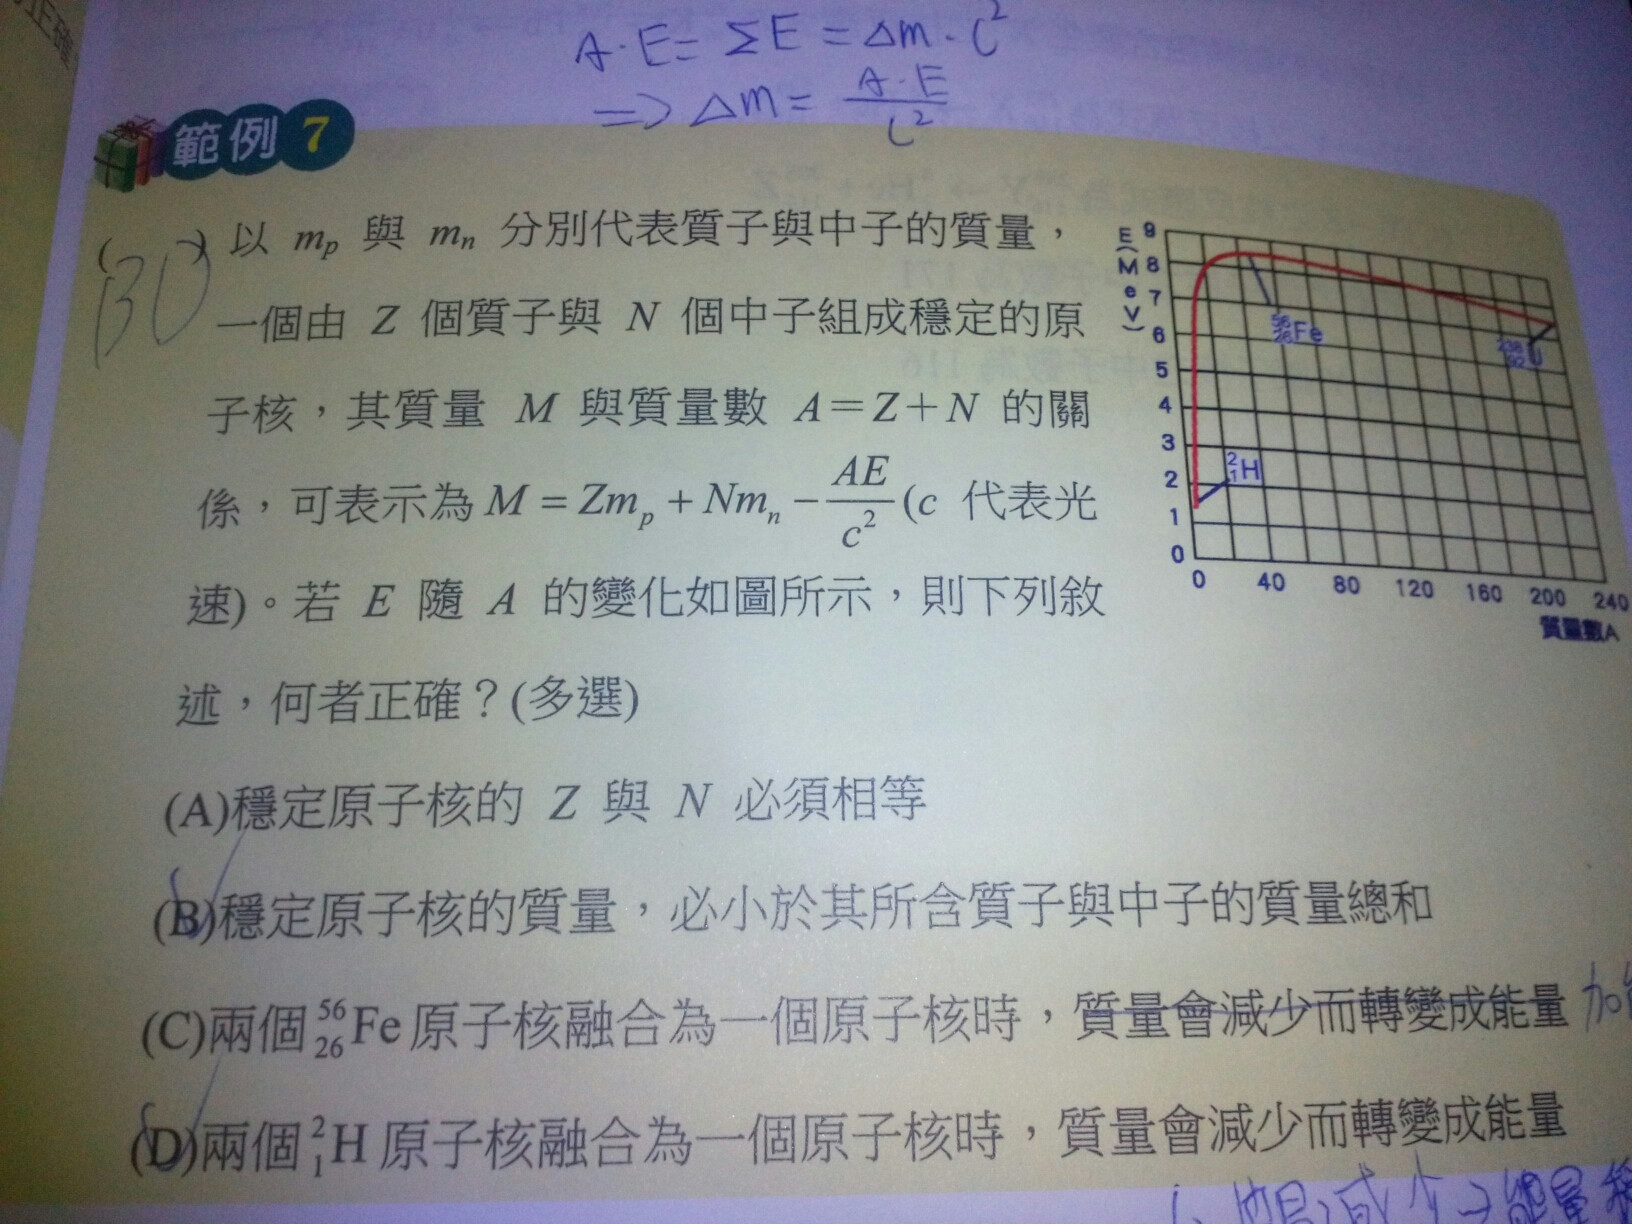 A·E=ΣE=Δm·C²
=>Δm=A·E/C²
範例 7
( BD ) 以 mₚ 與 mₙ 分別代表質子與中子的質量，
一個由 Z 個質子與 N 個中子組成穩定的原
子核，其質量 M 與質量數 A＝Z＋N 的關
係，可表示為 M = Zmₚ + Nmₙ − AE/c² (c 代表光
速)。若 E 隨 A 的變化如圖所示，則下列敘
述，何者正確？(多選)
E(MeV)
9
8
7
6
5
4
3
2
1
0
⁵⁶₂₆Fe
²³⁸₉₂U
²₁H
0 40 80 120 160 200 240
質量數A
(A)穩定原子核的 Z 與 N 必須相等
(B)穩定原子核的質量，必小於其所含質子與中子的質量總和
(C)兩個 ⁵⁶₂₆Fe 原子核融合為一個原子核時，質量會減少而轉變成能量
(D)兩個 ²₁H 原子核融合為一個原子核時，質量會減少而轉變成能量